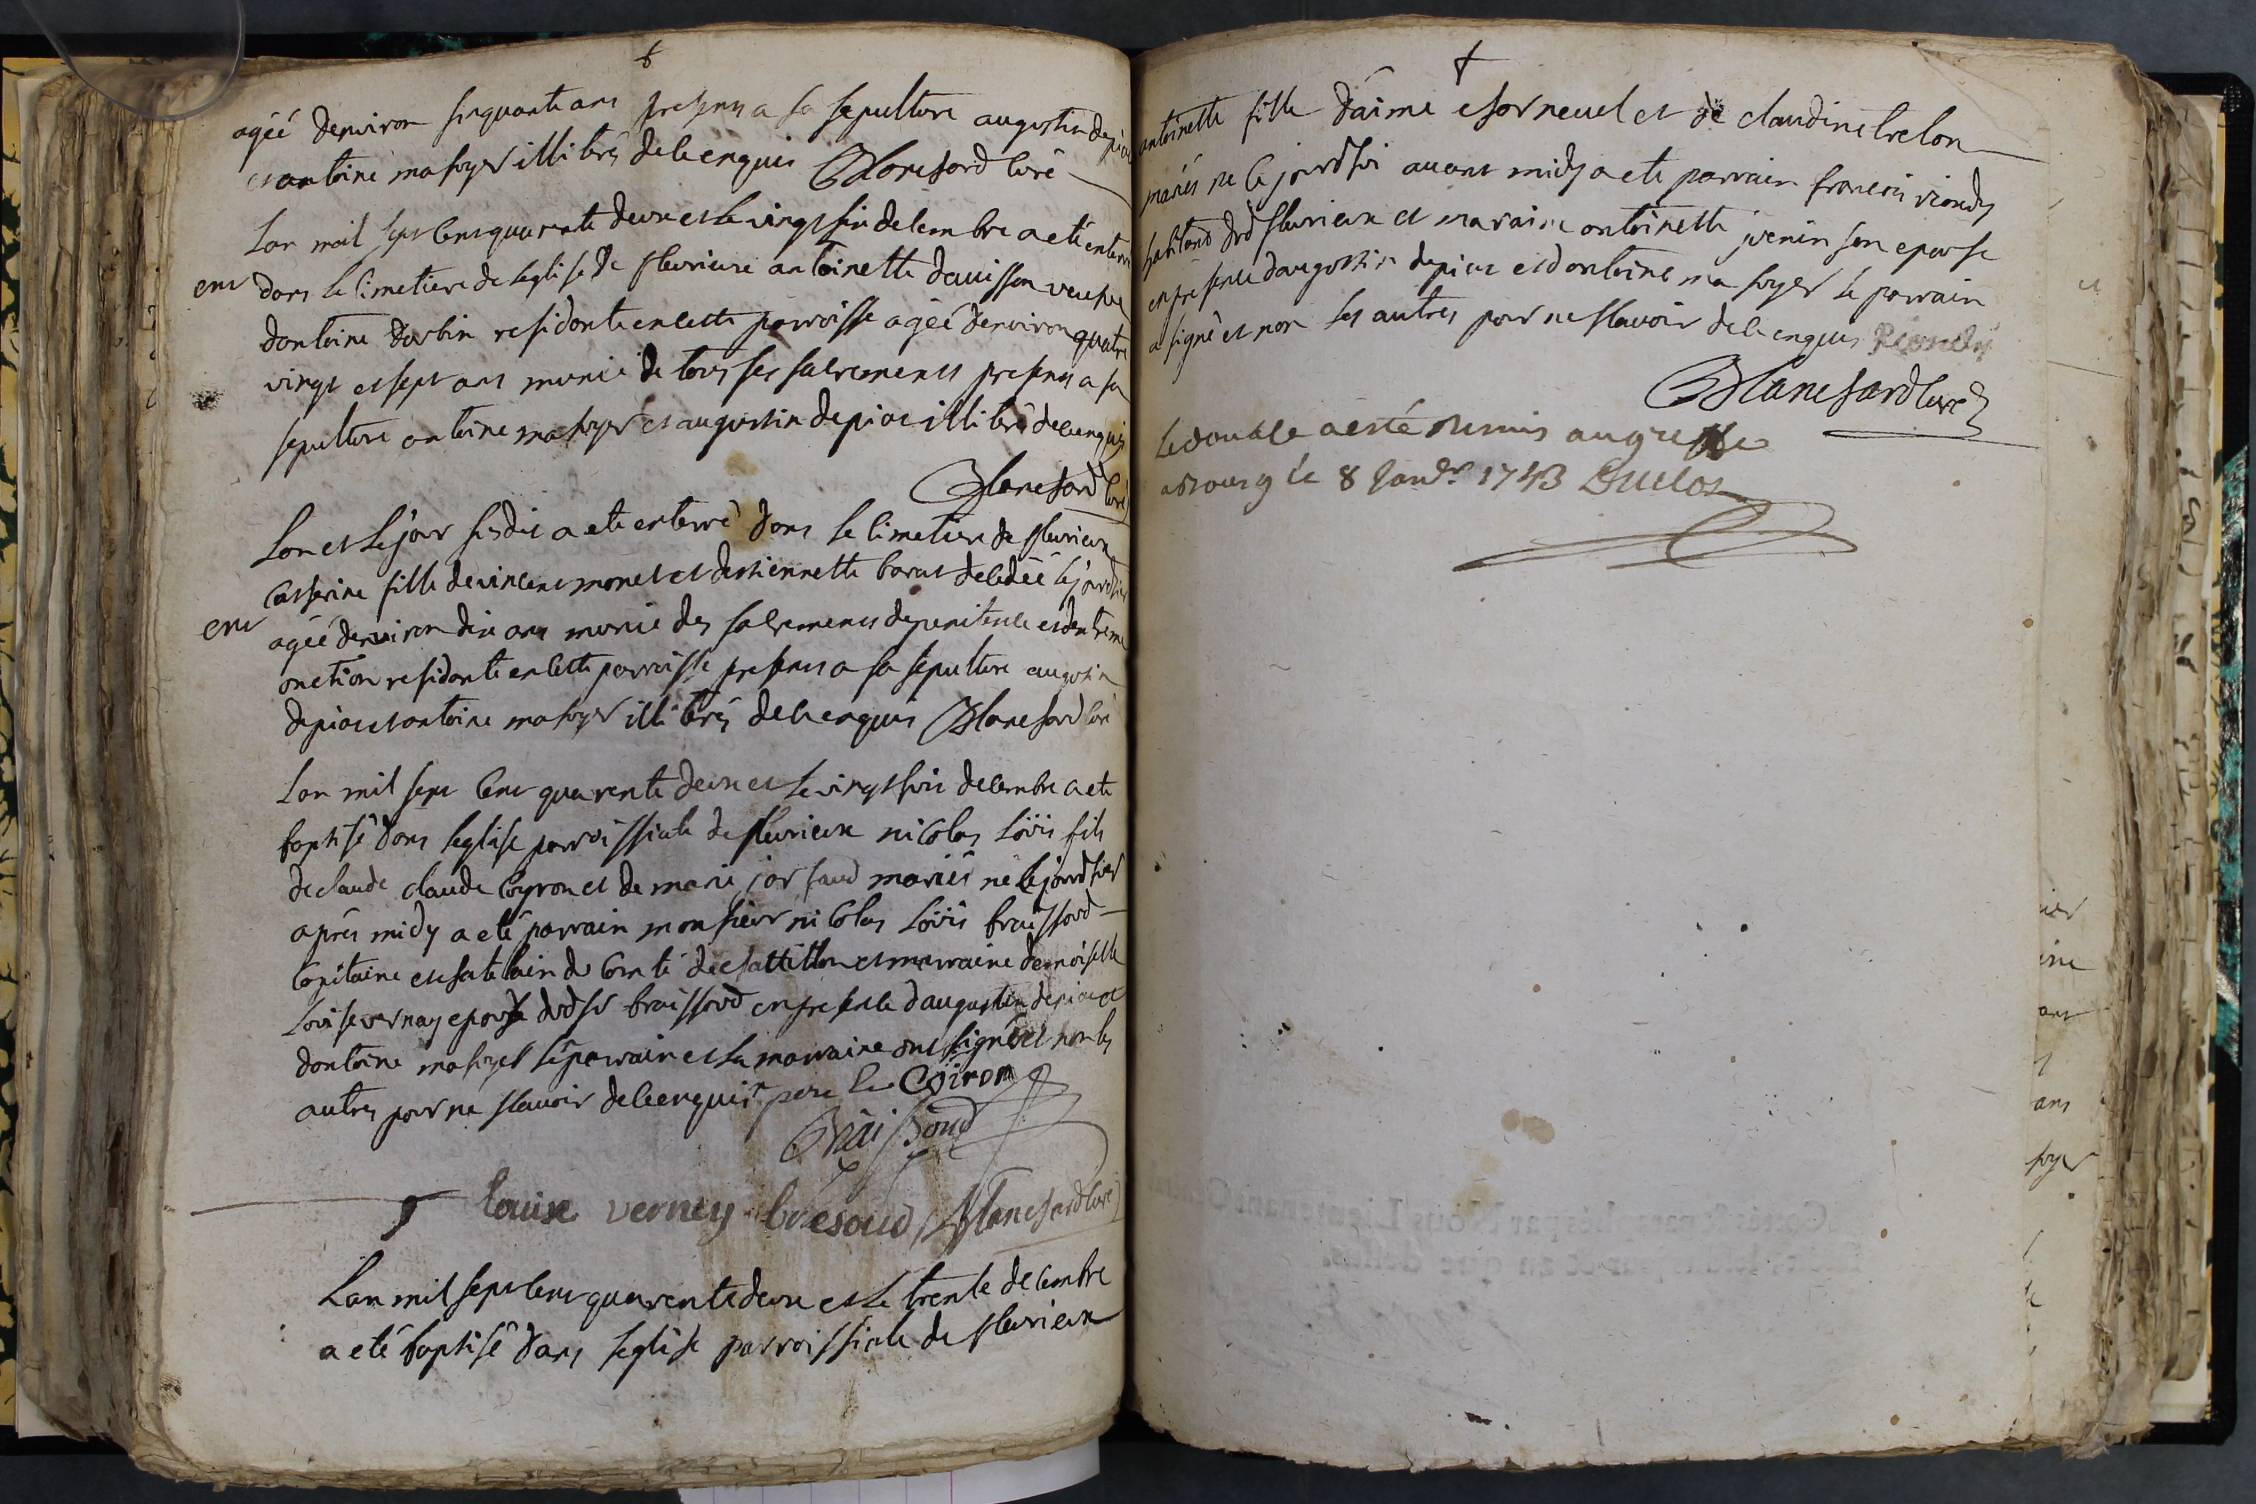 agéé denviron sinquante ans presens a sa sepulture augustin depias
et antoine mahyer illitérés de ce enquis Blanchard curé
Lan mil sept cens quarente deux et le vingt six decembre a eté enterré
dans le cimetiere de leglise de fleurieux antoinette dauisson veufve
ent
dantoine dorbin residante en cette parroisse agéé denviron quatre
vingt et sept ans munie de tous ses sacrements presens a sa
sepulture antoine mahyer et augustin depias illitéré de ce enquis
Blanchard curé
Lan et le jour susdit a eté enterré dans le cimetiere de fleurieux
Catherine fille de vincent monet et destiennette borat decedéé le jourdhier
ent
agéé denviron dix ans munie des sacremens de penitence et dextreme
onction residante en cette parroisse presens a sa sepulture augustin
depias et antoine mahyer illitérés de ce enquis Blanchard curé
Lan mil sept cent quarente deux et le vingt huis decembre a eté
baptisé dans leglise parroissiale de fleurieux nicolas loüis fils
de claude claude Coyron et de marie jorsaud mariés né le jourdhier
aprés midy a eté parrain monsieur nicolas loüis braissoud
capitaine et chatelain du Comté de chattillon et marraine demoiselle
Louise vernay epouse dud sr braissoud en presence daugustin depias et
dantoine mahyer le parrain et la marraine ont signéet non les
autres pour ne scavoir de ce enquis pere Coiron
Braissoud
louise verney bresoud Blanchard curé
Lan mil sept cens quarente deux et le trente decembre
a eté baptisé dans leglise parroissiale de fleurieux
antoinette fille daimé chorneuel et de claudine trelon
mariés né le jourdhui avant midy a eté parrain francois riondy
habitant dud fleurieux et maraine antoinette juenin son epouse
en presence daugostin depias et dantoine mahyer le parrain
a signé et non les autres pour ne scavoir de ce enquis Riondy
Blanchard curé
Le double a esté remis au greffe
a Bourg le 8 Janvr 1743 Duclos